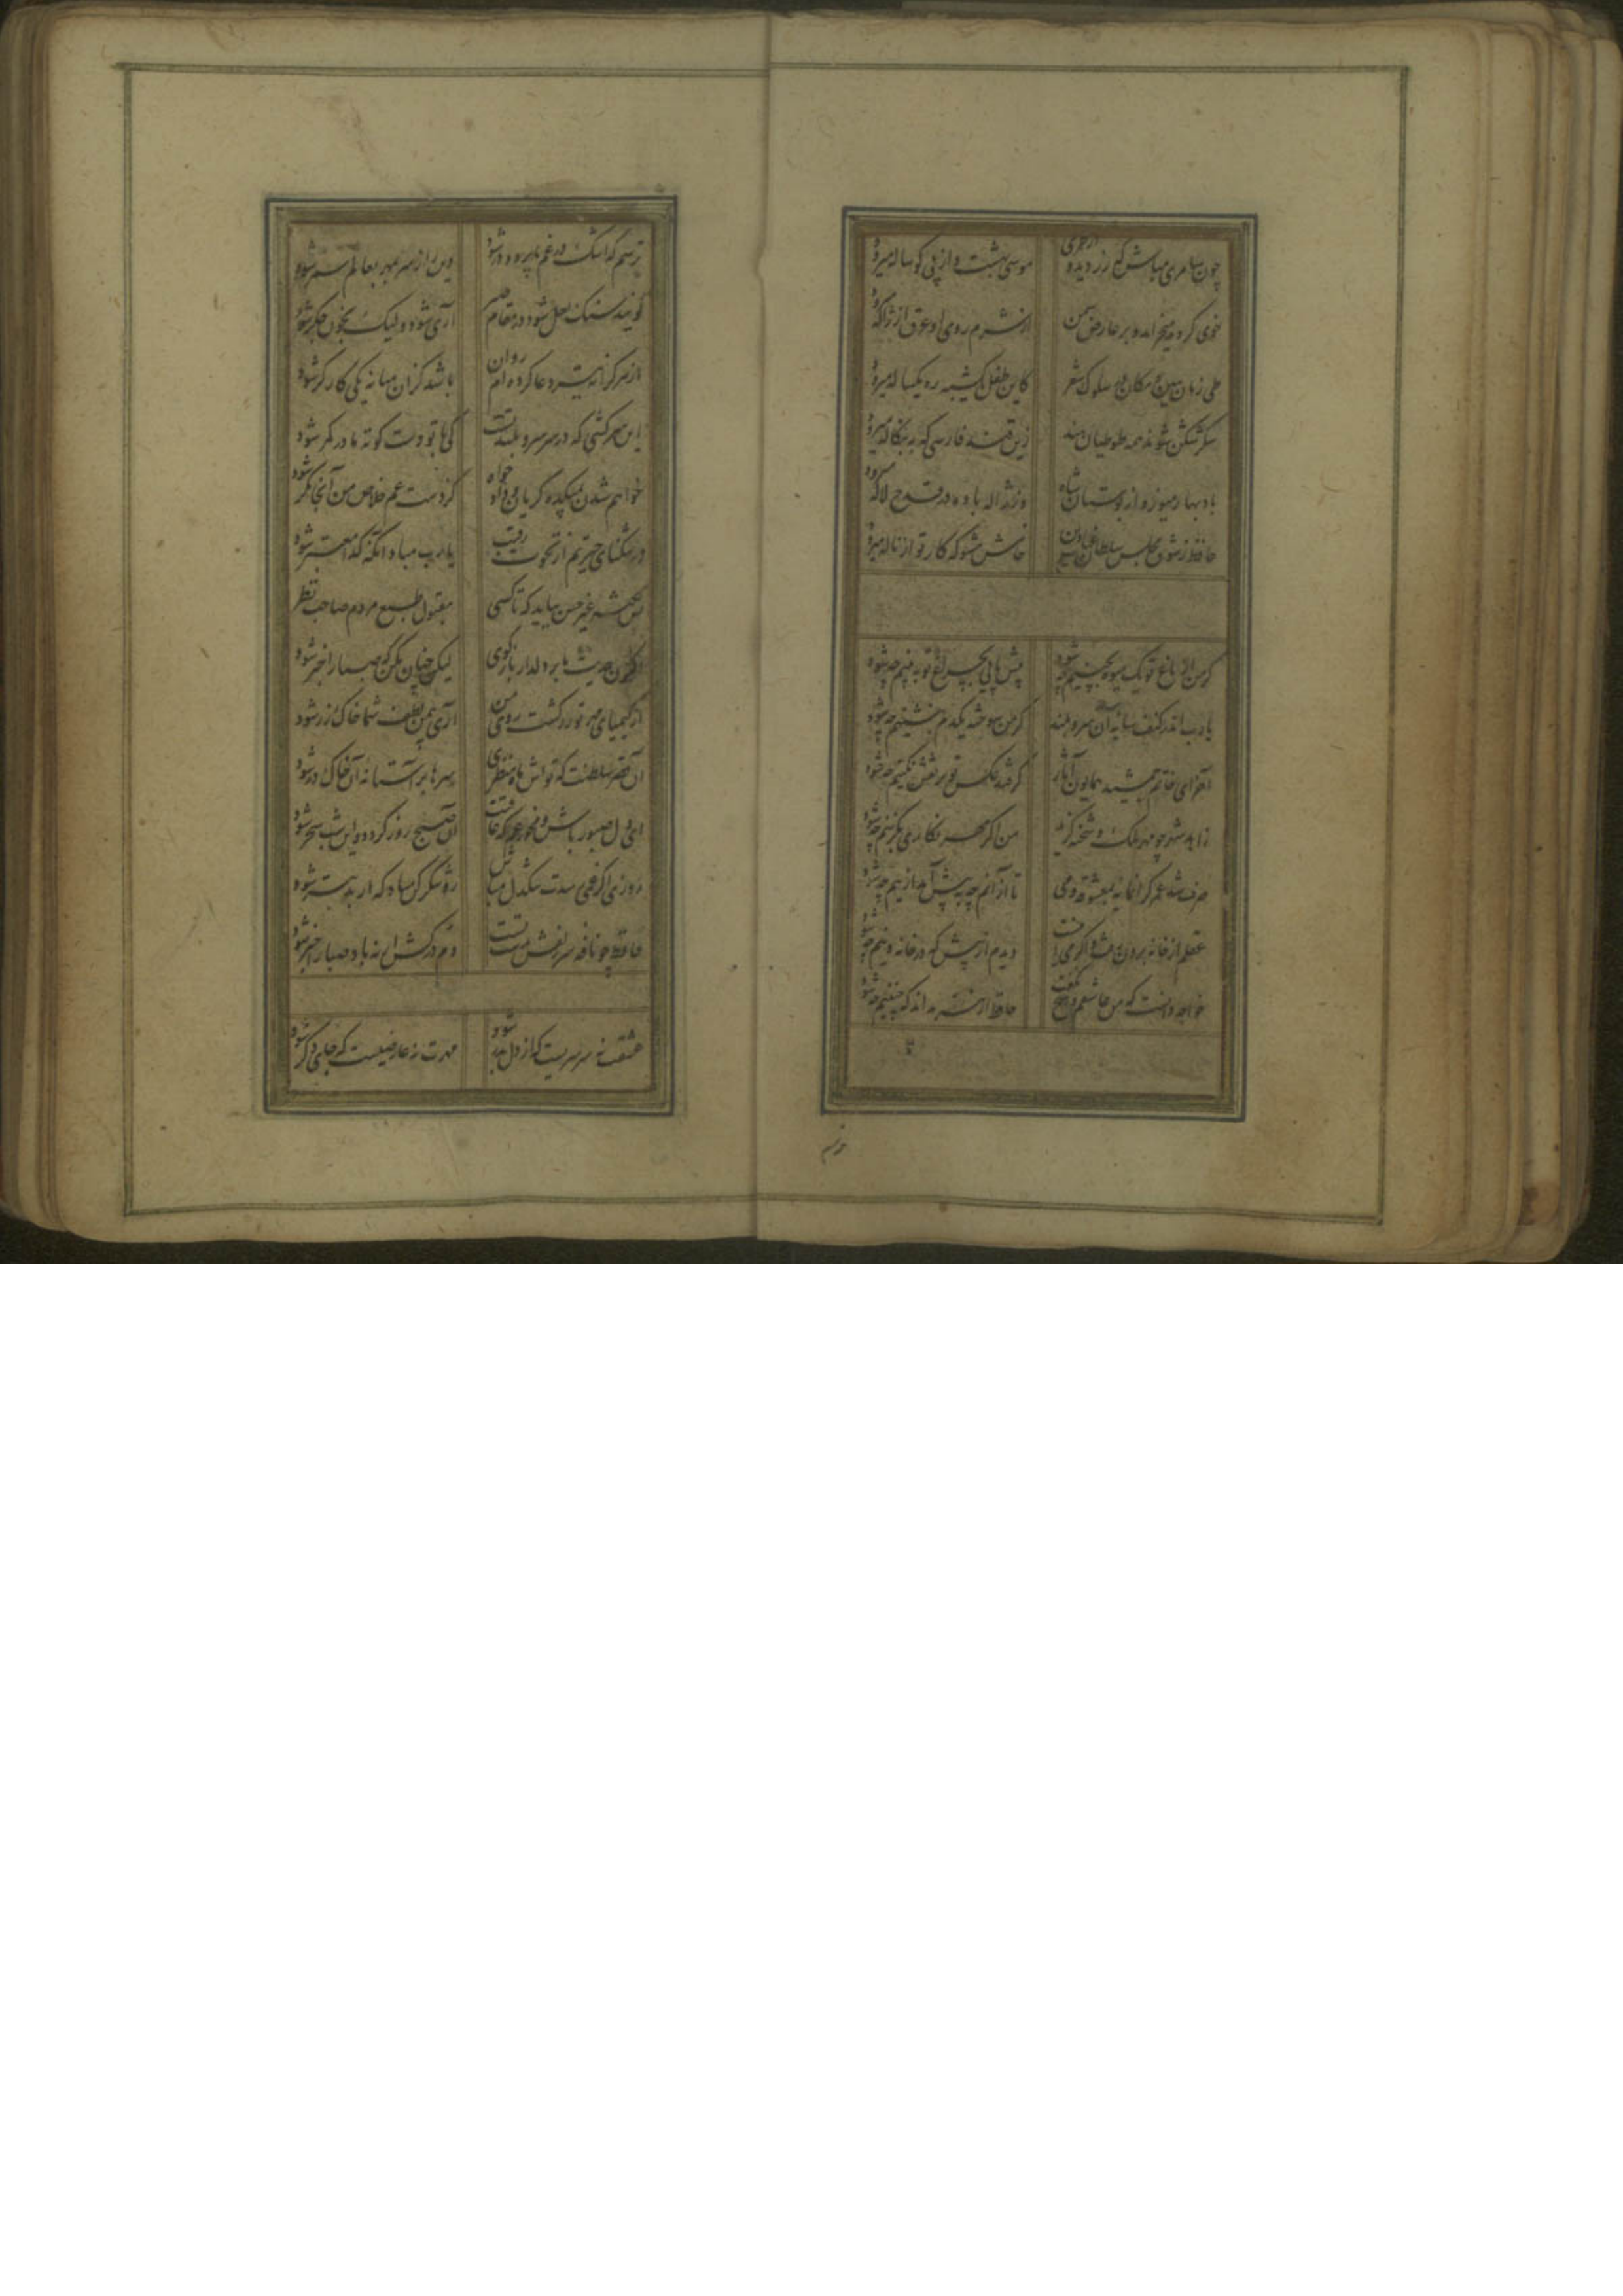 چون سامری مباش که زر دیده از خری موسی بهشت و از پی گوساله میرود
خوی کرده میخرامد و بر عارض سمن از شرم روی او عرق از ژاله میرود
طی زمان ببین و مکان در سلوک شعر کاین طفل یکشبه ره یکساله میرود
شکرشکن شوند همه طوطیان هند زین قند فارسی که به بنگاله میرود
باد بهار میوزد از بوستان شاه وز ژاله باده در قدح لاله میرود
حافظ ز شوق مجلس سلطان غیاث دین خامش مشو که کار تو از ناله میرود
گر من از باغ تو یک میوه بچینم چه شود پیش پایی بچراغ تو به بینم چه شود
یارب اندر کنف سایه آن سرو بلند گر من سوخته یکدم بنشینم چه شود
آخر ای خاتم جمشید همایون آثار گر فتد عکس تو بر نقش نگینم چه شود
زاهد شهر چو مهر ملک و شحنه گزید من اگر مهر نگاری بگزینم چه شود
صرف شد عمر گرانمایه بمعشوقه و می تا از آنم چه به پیش آید ازینم چه شود
عقلم از خانه بدر رفت و اگر می اینست دیدم از پیش که در خانه دینم چه شود
خواجه دانست که من عاشقم و هیچ نگفت حافظ ار نیز بداند که چنینم چه شود
ترسم
ترسم که اشک در غم ما پرده در شود وین راز سر بمهر بعالم سمر شود
گویند سنگ لعل شود در مقام صبر آری شود ولیک بخون جگر شود
از هر کرانه تیر دعا کرده ام روان باشد کزان میانه یکی کارگر شود
این سرکشی که در سر سرو بلند تست کی با تو دست کوته ما در کمر شود
خواهم شدن بمیکده گریان و دادخواه کز دست غم خلاص من آنجا مگر شود
در تنگنای حیرتم از نخوت رقیب یارب مباد آنکه گدا معتبر شود
بس نکته غیر حسن بباید که تا کسی مقبول طبع مردم صاحب نظر شود
حدیث ما بر دلدار بازگوی لیکن چنان مگو که صبا را خبر شود
از کیمیای مهر تو زر گشت روی من آری بیمن لطف شما خاک زر شود
این قصر سلطنت که تواش ماه منظری سرها بر آستانه آن خاک در شود
ای دل صبور باش و مخور غم که عاقبت این صبح روز گردد و این شب سحر شود
روزی اگر غمی رسدت تنگدل مباش رو شکر کن مباد که از بد بتر شود
حافظ چو نافه سر زلفش بدست تست دم درکش ار نه باد صبا را خبر شود
عشقت نه سرسریست که از دل بدر شود مهرت نه عارضیست که جای دگر شود